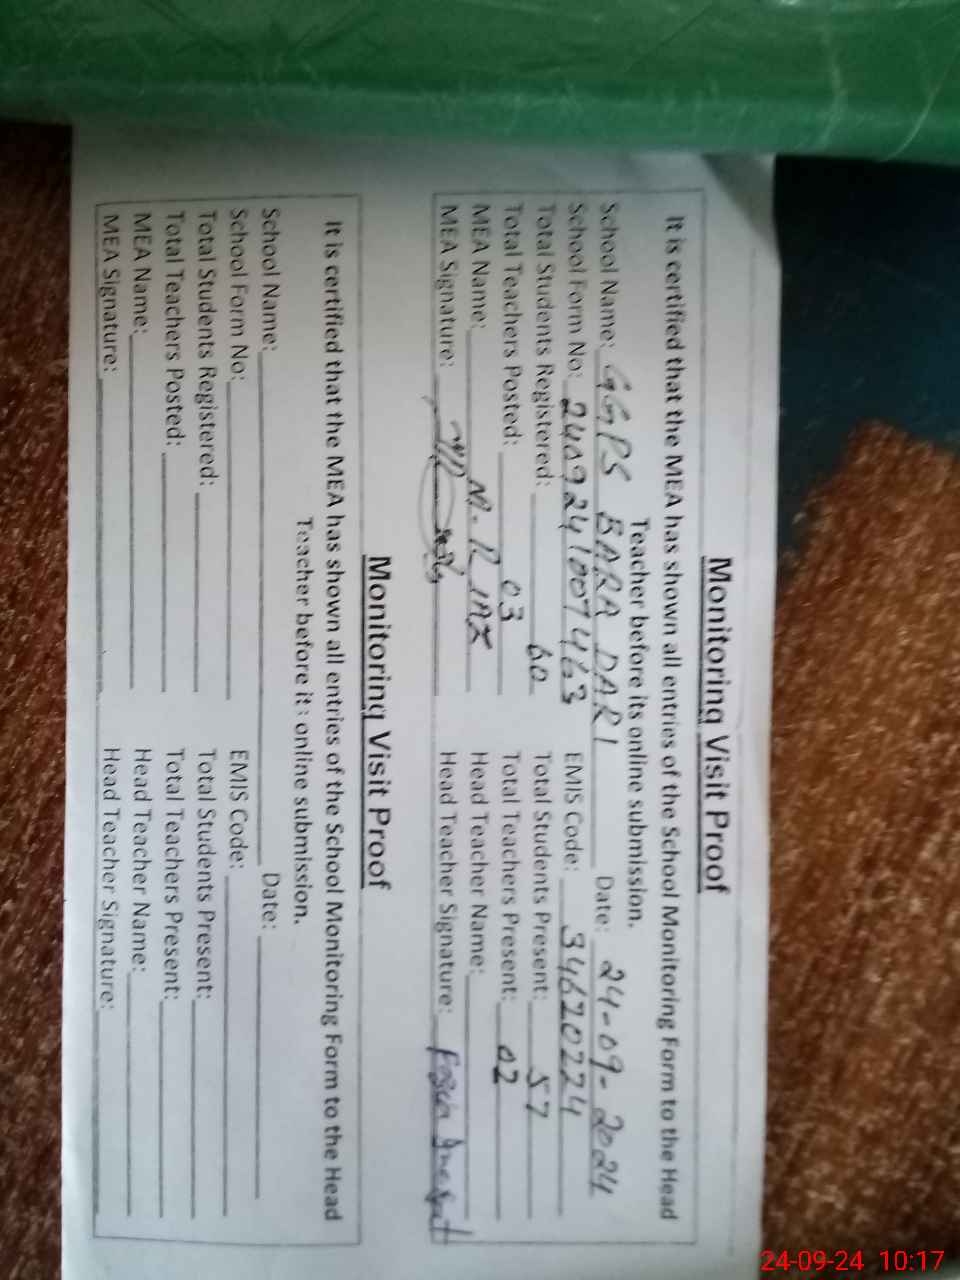 Monitoring Visit Proof
It is certified that the MEA has shown all entries of the School Monitoring Form to the Head
Teacher before its online submission.
School Name: GGPS BARA DARI Date: 24-09-2024
School Form No: 2409241007463 EMIS Code: 34620224
Total Students Registered: 60 Total Students Present: 57
Total Teachers Posted: 03 Total Teachers Present: 02
MEA Name: M. RIAZ Head Teacher Name:
MEA Signature: Head Teacher Signature:
Monitoring Visit Proof
It is certified that the MEA has shown all entries of the School Monitoring Form to the Head
Teacher before its online submission.
School Name: Date:
School Form No: EMIS Code:
Total Students Registered: Total Students Present:
Total Teachers Posted: Total Teachers Present:
MEA Name: Head Teacher Name:
MEA Signature: Head Teacher Signature:
24-09-24 10:17